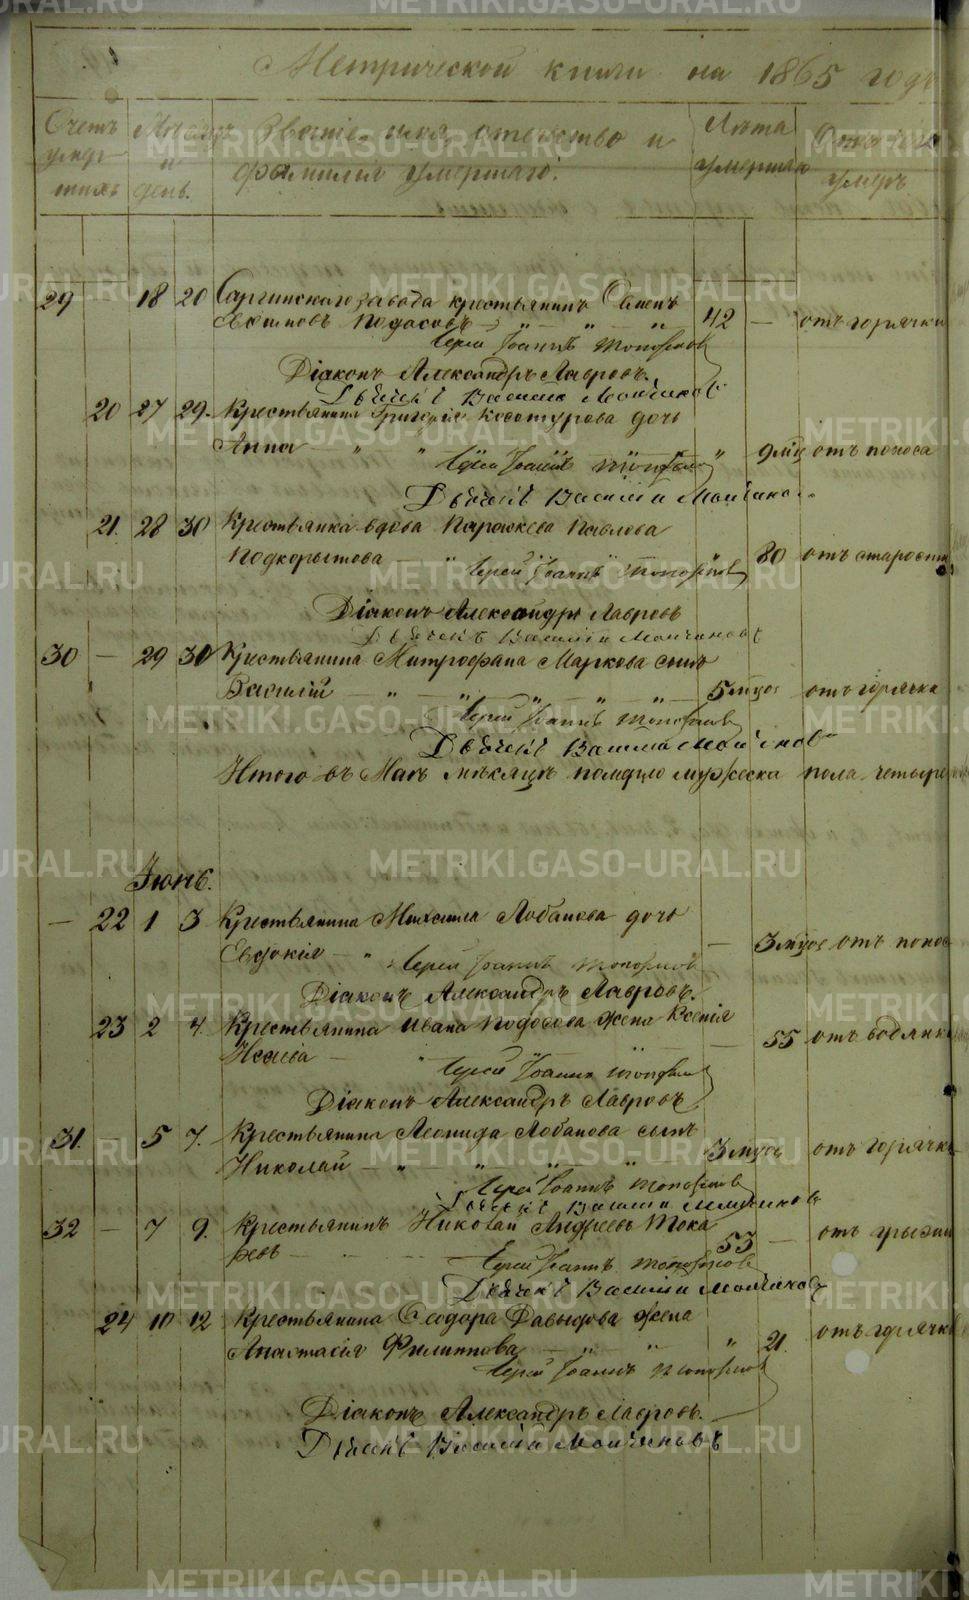 Метрической книги на 1865 годъ
Счетъ умер- шихъ
Мѣсяцъ и день.
Званіе, имя, отчество и фамилія умершаго.
Лѣта умершаго
Отъ чего умеръ
29 18 20 Саргинскаго завода крестьянинъ Семенъ
Подосовъ — „ — „ — „ 42 — отъ горячки
Іерей Іоаннъ Топорковъ
Діаконъ Александръ Лавровъ.
Дьячекъ Василій Молчановъ
20 27 29. Крестьянина Григорія Косотурова дочь
Анна — „ „ „ 9 мѣц отъ поноса
Іерей Іоаннъ
Дьячекъ Василій Молчано
21. 28 30 Крестьянка вдова Параскева Павлова
Подкорытова — „ 80 отъ старости
Іерей Іоаннъ Топорковъ
Діаконъ Александръ Лавровъ
Дьячекъ Василій Молчановъ
30 — 29 30 Крестьянина Митрофана Маркова сынъ
Василій — „ — „ — „ — „ 5 мцов отъ горячки
Іерей Іоаннъ Топорковъ
Дьячекъ Василій Молчановъ
Итого въ Маѣ мѣсяцѣ померло мужеска пола четыре
Іюнь.
— 22 1 3 Крестьянина Михаила Лобанова дочь
Евдокія — „ — 3 мцов отъ понос
Іерей Іоаннъ Топорковъ
Діаконъ Александръ Лавровъ.
23 2 4. Крестьянина Ивана Подосова жена Ксенія
— „ — 55 отъ водянки
Іерей Іоаннъ
Діаконъ Александръ Лавровъ
31. 5 7. Крестьянина Леонида Лобанова сынъ
Николай — „ — „ — „ 3 мцов отъ горячки
Іерей Іоаннъ Топорковъ
Дьячекъ Василій Молчановъ
32 — 7 9. Крестьянинъ Николай Андреевъ Тока
ревъ — 53 — отъ грыжи
Іерей Іоаннъ Топорковъ
Дьячекъ Василій Молчановъ
24 10 12 Крестьянина Ѳеодора Давыдова жена
Анастасія Филиппова „ „ „ 21. отъ горячки
Іерей Іоаннъ Топорковъ
Діаконъ Александръ Лавровъ.
Дьячекъ Василій Молчановъ
METRIKI.GASO-URAL.RU